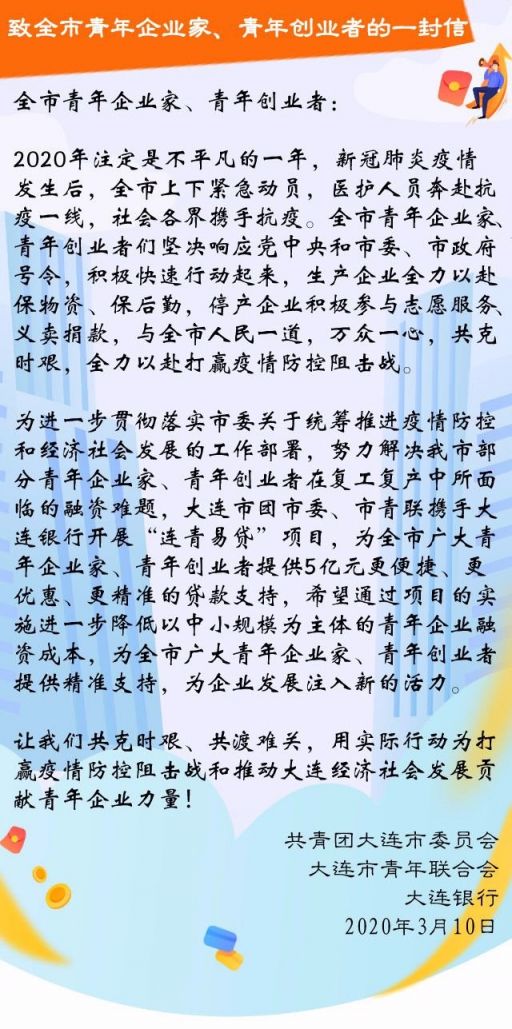 致全市青年企业家、青年创业者的一封信
全市青年企业家、青年创业者：
2020年注定是不平凡的一年，新冠肺炎疫情
发生后，全市上下紧急动员，医护人员奔赴抗
疫一线，社会各界携手抗疫。全市青年企业家、
青年创业者们坚决响应党中央和市委、市政府
号令，积极快速行动起来，生产企业全力以赴
保物资、保后勤，停产企业积极参与志愿服务、
义卖捐款，与全市人民一道，万众一心，共克
时艰，全力以赴打赢疫情防控阻击战。
为进一步贯彻落实市委关于统筹推进疫情防控
和经济社会发展的工作部署，努力解决我市部
分青年企业家、青年创业者在复工复产中所面
临的融资难题，大连市团市委、市青联携手大
连银行开展“连青易贷”项目，为全市广大青
年企业家、青年创业者提供5亿元更便捷、更
优惠、更精准的贷款支持，希望通过项目的实
施进一步降低以中小规模为主体的青年企业融
资成本，为全市广大青年企业家、青年创业者
提供精准支持，为企业发展注入新的活力。
让我们共克时艰、共渡难关，用实际行动为打
赢疫情防控阻击战和推动大连经济社会发展贡
献青年企业力量！
共青团大连市委员会
大连市青年联合会
大连银行
2020年3月10日